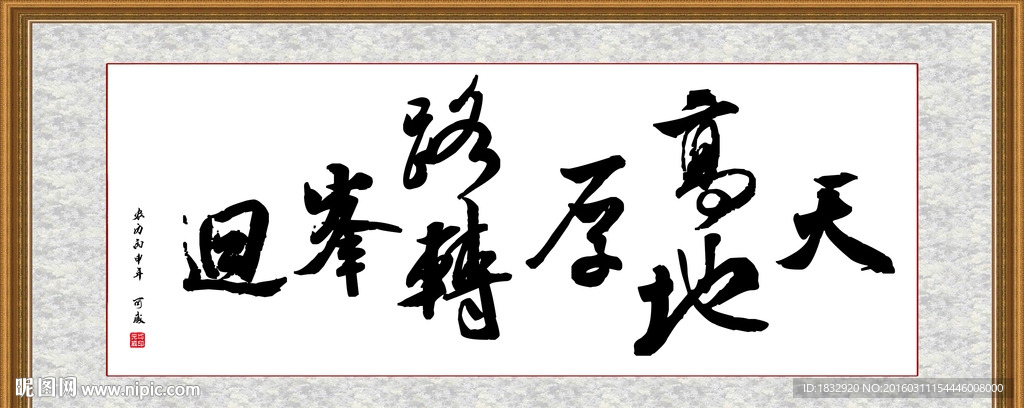 天高地厚路轉峯迴
丙申年 可成
昵图网 www.nipic.com
ID:1832920 NO:20160311154446008000